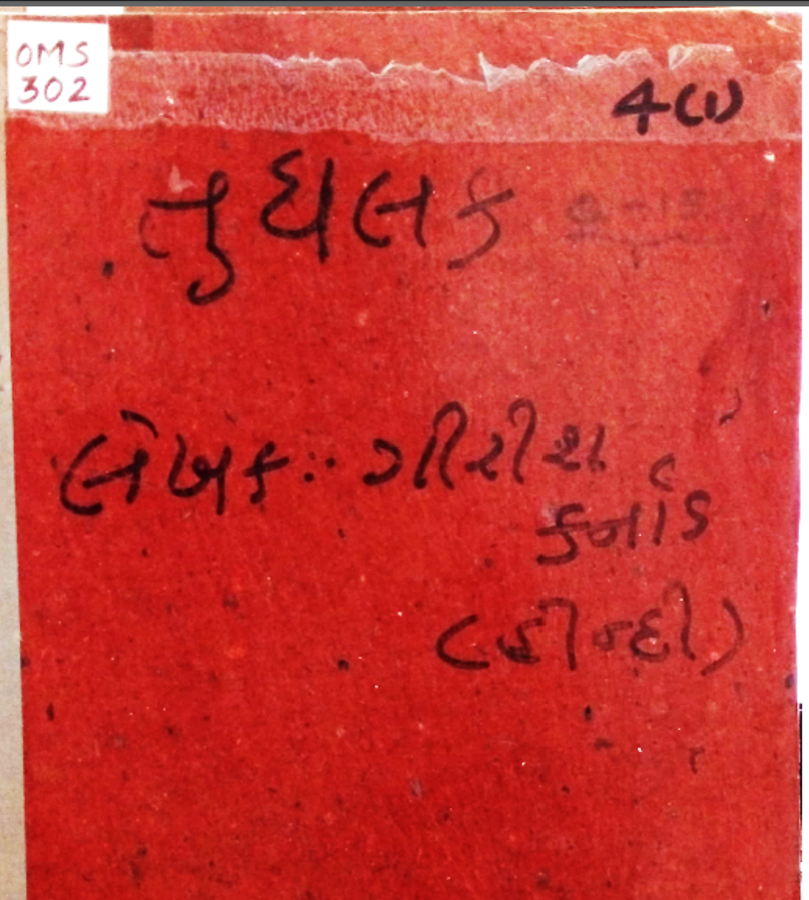 OMS
302
4(1)
તુઘલક
લેખક:- ગીરીશ
કર્નાડ
(હીન્દી)